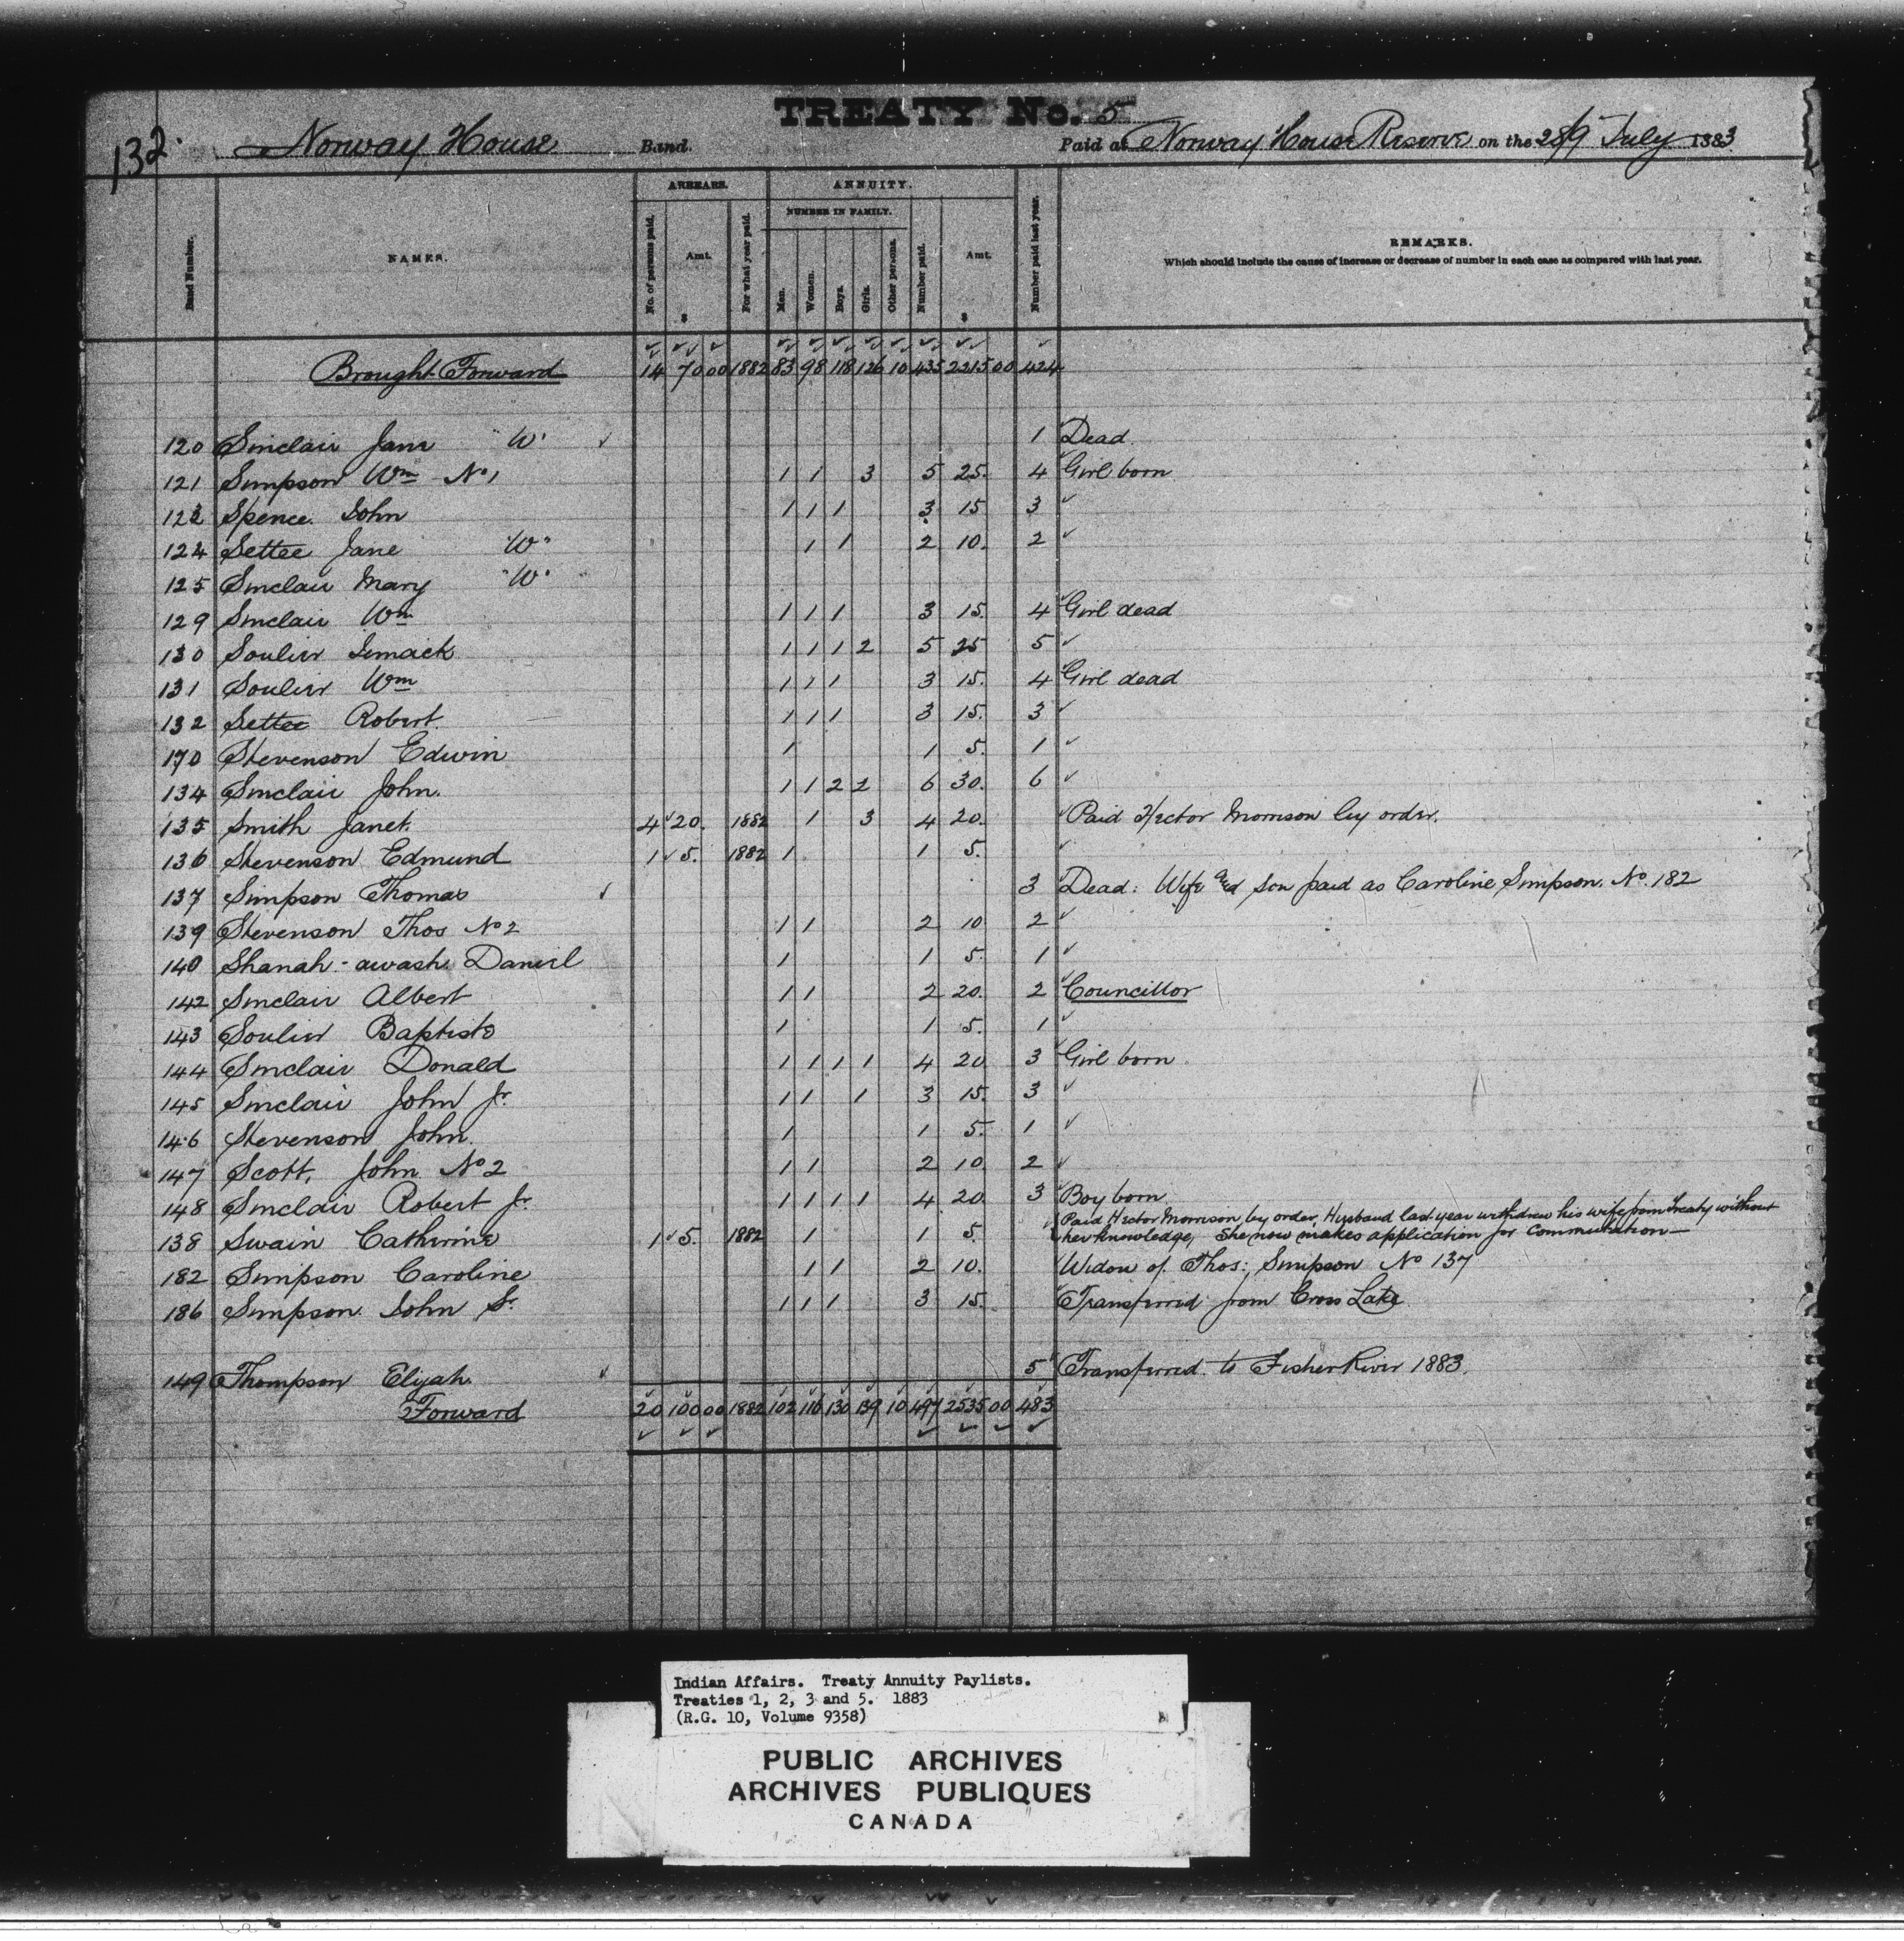 132.
TREATY No. 5
Norway House Band. Paid at Norway House Reserve on the 28/9 July 1883
Band Number.
NAMES.
ARREARS.
No. of persons paid.
Amt.
$
For what year paid.
ANNUITY.
NUMBER IN FAMILY.
Men.
Women.
Boys.
Girls.
Other persons.
Number paid.
Amt.
$
Number paid last year.
REMARKS.
Which should include the cause of increase or decrease of number in each case as compared with last year.
Brought Forward 14 70 00 1882 83 98 118 126 10 435 2215 00 424
120 Sinclair Jane "W" 1 Dead
121 Simpson Wm No 1 1 1 3 5 25. 4 Girl born
123 Spence John 1 1 1 3 15 3
124 Settee Jane "W" 1 1 2 10. 2
125 Sinclair Mary "W"
129 Sinclair Wm 1 1 1 3 15. 4 Girl dead
130 Soulier 1 1 1 2 5 25 5
131 Soulier Wm 1 1 1 3 15. 4 Girl dead
132 Settee Robert 1 1 1 3 15. 3
170 Stevenson Edwin 1 1 5. 1
134 Sinclair John. 1 1 2 2 6 30. 6
135 Smith Janet. 4 20. 1882 1 3 4 20. Paid Hector Morrison by order.
136 Stevenson Edmund 1 5. 1882 1 1 5.
137 Simpson Thomas 3 Dead: Wife and son paid as Caroline Simpson. No. 182
139 Stevenson Thos No 2 1 1 2 10 2
140 Shanah-awash Daniel 1 1 5. 1
142 Sinclair Albert 1 1 2 20. 2 Councillor
143 Soulier Baptiste 1 1 5. 1
144 Sinclair Donald 1 1 1 1 4 20 3 Girl born
145 Sinclair John Jr. 1 1 1 3 15. 3
146 Stevenson John. 1 1 5. 1
147 Scott, John No 2 1 1 2 10 2
148 Sinclair Robert Jr. 1 1 1 1 4 20 3 Boy born
Paid Hector Morrison by order, Husband last year withdrew his wife from Treaty without
138 Swain Catherine 1 5. 1882 1 1 5. her knowledge, She now makes application for commutation—
182 Simpson Caroline 1 1 2 10. Widow of Thos: Simpson No 137
186 Simpson John Sr. 1 1 1 3 15. Transferred from Cross Lake
149 Thompson Elijah. 5 Transferred to Fisher River 1883.
Forward 20 100 00 1882 102 116 130 139 10 497 2535 00 483
Indian Affairs. Treaty Annuity Paylists.
Treaties 1, 2, 3 and 5. 1883
(R.G. 10, Volume 9358)
PUBLIC ARCHIVES
ARCHIVES PUBLIQUES
CANADA